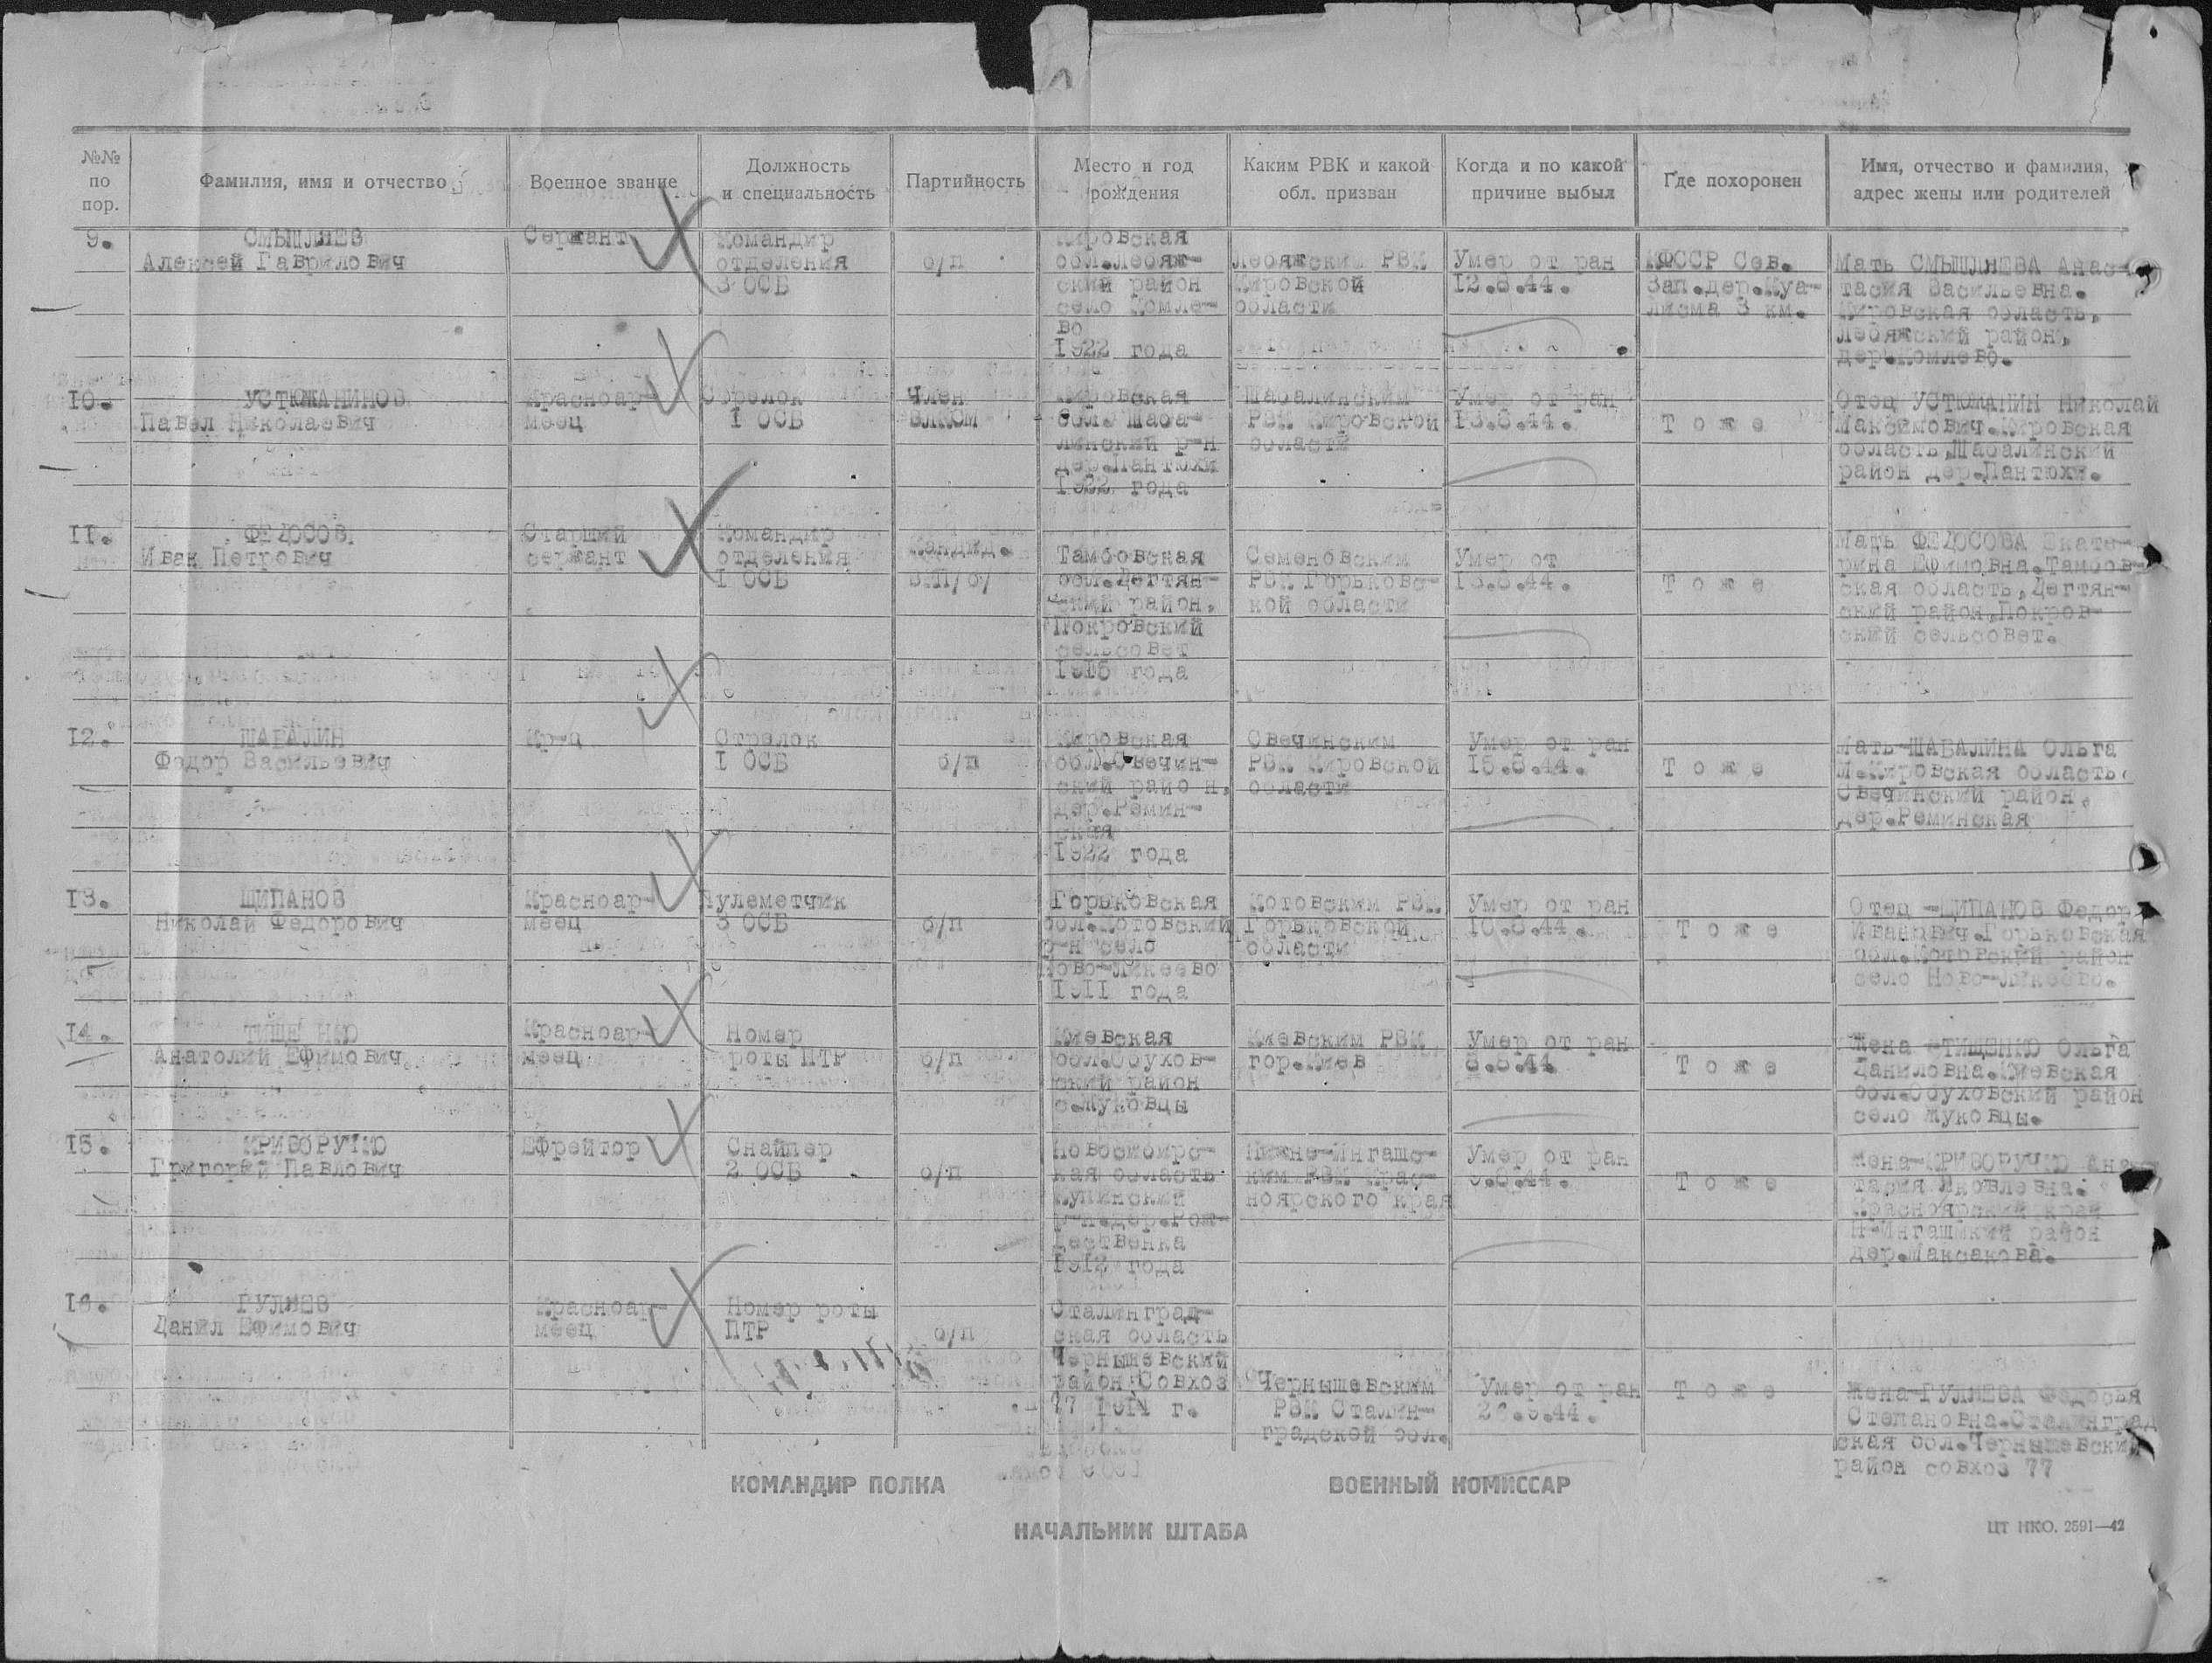 №№ по пор.
Фамилия, имя и отчество
Военное звание
Должность и специальность
Партийность
Место и год рождения
Каким РВК и какой обл. призван
Когда и по какой причине выбыл
Где похоронен
Имя, отчество и фамилия, адрес жены или родителей
9.
СМЫШЛЯЕВ
Алексей Гаврилович
Сержант
Командир
отделения
3 ОСБ
б/п
Кировская
обл.Лебяж-
ский район
село Комле-
во
1922 года
Лебяжским РВК
Кировской
области
Умер от ран
12.8.44.
КФССР Сев.
Зап.дер.Куа-
лисма 3 км.
Мать СМЫШЛЯЕВА Анас-
тасия Васильевна.
Кировская область,
Лебяжский район,
дер.Комлево.
10.
УСТЮЖАНИНОВ
Павел Николаевич
Красноар-
меец
Стрелок
1 ОСБ
Член
ВЛКСМ
Кировская
обл. Шаба-
линский р-н
дер.Пантюхи
1922 года
Шабалинским
РВК Кировской
области
Умер от ран
13.8.44.
Т о ж е
Отец УСТЮЖАНИН Николай
Максимович.Кировская
область,Шабалинский
район дер.Пантюхи.
11.
ФЕДОСОВ
Иван Петрович
Старший
сержант
Командир
отделения
1 ОСБ
Кандид.
Тамбовская
обл.Дегтян-
ский район,
Покровский
сельсовет
года
Семеновским
РВК Горьковс-
кой области
Умер от
13.8.44.
Т о ж е
Мать ФЕДОСОВА Екате-
рина Ефимовна.Тамбов-
ская область,Дегтян-
ский район,Покров-
ский сельсовет.
12.
ШАБАЛИН
Федор Васильевич
Кр-ц
Стрелок
1 ОСБ
б/п
Кировская
обл.Свечин-
ский райо н,
дер.Ремин-
ская
1922 года
Свечинским
РВК Кировской
области
Умер от ран
15.8.44.
Т о ж е
Мать-ШАБАЛИНА Ольга
М.Кировская область,
Свечинский район,
дер.Реминская
13.
ЩИПАНОВ
Николай Федорович
Красноар-
меец
Пулеметчик
3 ОСБ
б/п
Горьковская
обл.Котовский
р-н село
Ново-Ликеево
1911 года
Котовским РВК
Горьковской
области
Умер от ран
10.8.44.
Т о ж е
Отец -ЩИПАНОВ Федор
Иванович.Горьковская
обл.Котовский район
село Ново-Ликеево.
14.
ТИЩЕ НКО
Анатолий Ефимович
Красноар-
меец
Номер
роты ПТР
б/п
Киевская
обл.Обухов-
ский район
с.Жуковцы
Киевским РВК
гор.Киев
Умер от ран
8.8.44
Т о ж е
Жена -ТИЩЕНКО Ольга
Даниловна.Киевская
обл.Обуховский район
село Жуковцы.
15.
КРИВОРУЧКО
Григорий Павлович
Ефрейтор
Снайпер
2 ОСБ
б/п
Новосибирс-
кая область
Купинский
р-н.дер.Рож-
дественка
1912 года
Нижне-Ингашс-
ким РВК Крас-
ноярского края
Умер от ран
Т о ж е
Жена-КРИВОРУЧКО Анас-
тасия Яковлевна.
Красноярский край
Н-Ингашский район
дер.Максакова.
16.
ГУЛЯЕВ
Данил Ефимович
Красноар-
меец
Номер роты
ПТР
б/п
Сталинград-
ская область
Чернышевский
район Совхоз
77 1911 г.
Чернышевским
РВК Сталин-
градской обл.
Умер от ран
Т о ж е
Жена-ГУЛЯЕВА Федосья
Степановна.Сталинград
ская обл.Чернышевский
район совхоз 77
КОМАНДИР ПОЛКА
ВОЕННЫЙ КОМИССАР
НАЧАЛЬНИК ШТАБА
ЦТ НКО. 2591—42